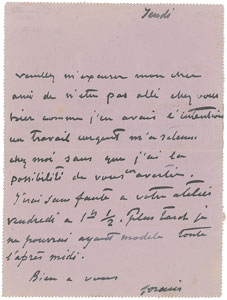 Jeudi
Veuillez m'excuser mon cher
ami de n'etre pas allé chez vous
hier comme j'en avais l'intention
un travail urgent m'a retenu
chez moi sans que j'ai la
possibilité de vous en avertir.
J'irai sans faute a votre atelier
vendredi a 1h ½. Plus tard je
ne pourrai ayant modele toute
l'après midi.
Bien a vous